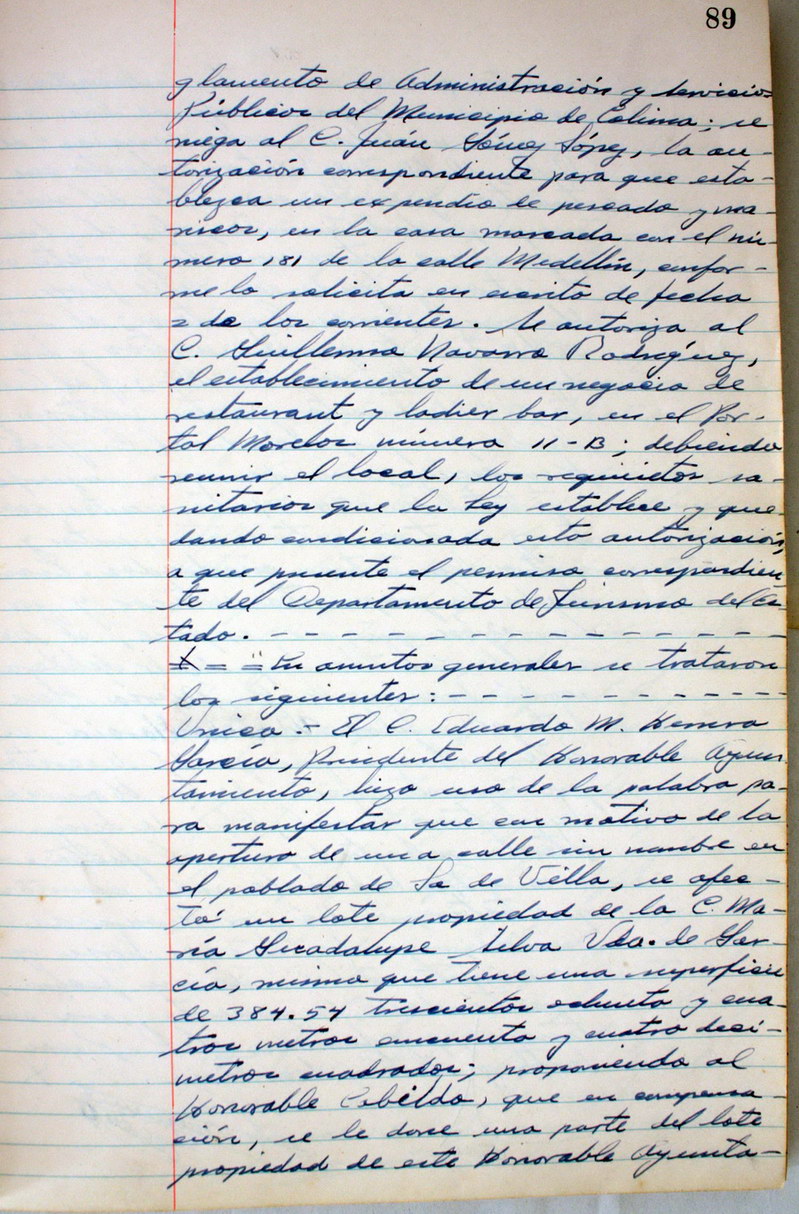 89
glamento de Administración y Servicios
Públicos del Municipio de Colima; se
niega al C. Juán Gómez López, la au-
torización correspondiente para que esta-
blezca un expendio de pescado y ma-
riscos, en la casa marcada con el nú-
mero 181 de la calle Medellín, confor-
me lo solicita en escrito de fecha
2 de los corrientes. Se autoriza al
C. Guillermo Navarro Rodríguez,
el establecimiento de un negocio de
restaurant y ladies bar, en el Por-
tal Morelos número 11-B; debiendo
reunir el local, los requisitos sa-
nitarios que la Ley establece y que-
dando condicionada esta autorización,
a que presente el permiso correspondien
te del Departamento de Turismo del Es-
tado. - - - - - - - - - - - - - -
= = En asuntos generales se trataron
los siguientes: - - - - - - - - - - -
Unico.- El C. Eduardo M. Herrera
García, Presidente del Honorable Ayun
tamiento, hizo uso de la palabra pa-
ra manifestar que con motivo de la
apertura de una calle sin nombre en
el poblado de La de Villa, se afec-
tó un lote propiedad de la C. Ma-
ría Guadalupe Silva Vda. de Gar-
cía, mismo que tiene una superficie
de 384.54 trescientos ochenta y cua
tros metros cincuenta y cuatro decí-
metros cuadrados; proponiendo al
Honorable Cabildo, que en compensa-
ción, se le done una parte del lote
propiedad de este Honorable Ayunta-